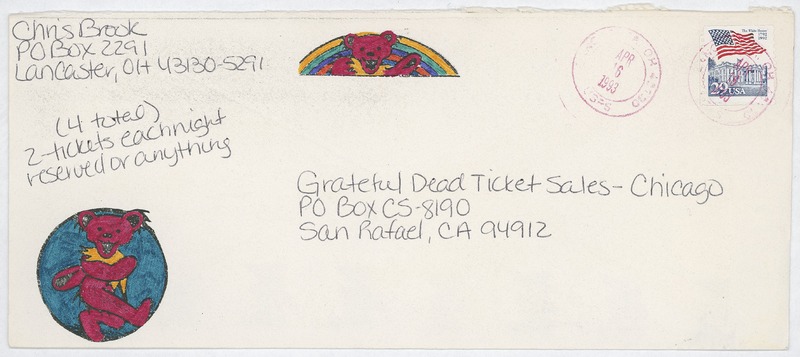 Chris Brook
PO Box 2291
Lancaster, OH 43130-5291
(4 total)
2-tickets each night
reserved or anything
Grateful Dead Ticket Sales - Chicago
PO Box CS-8190
San Rafael, CA 94912
APR
16
1993
USPS
The White House
1792 1992
29 USA